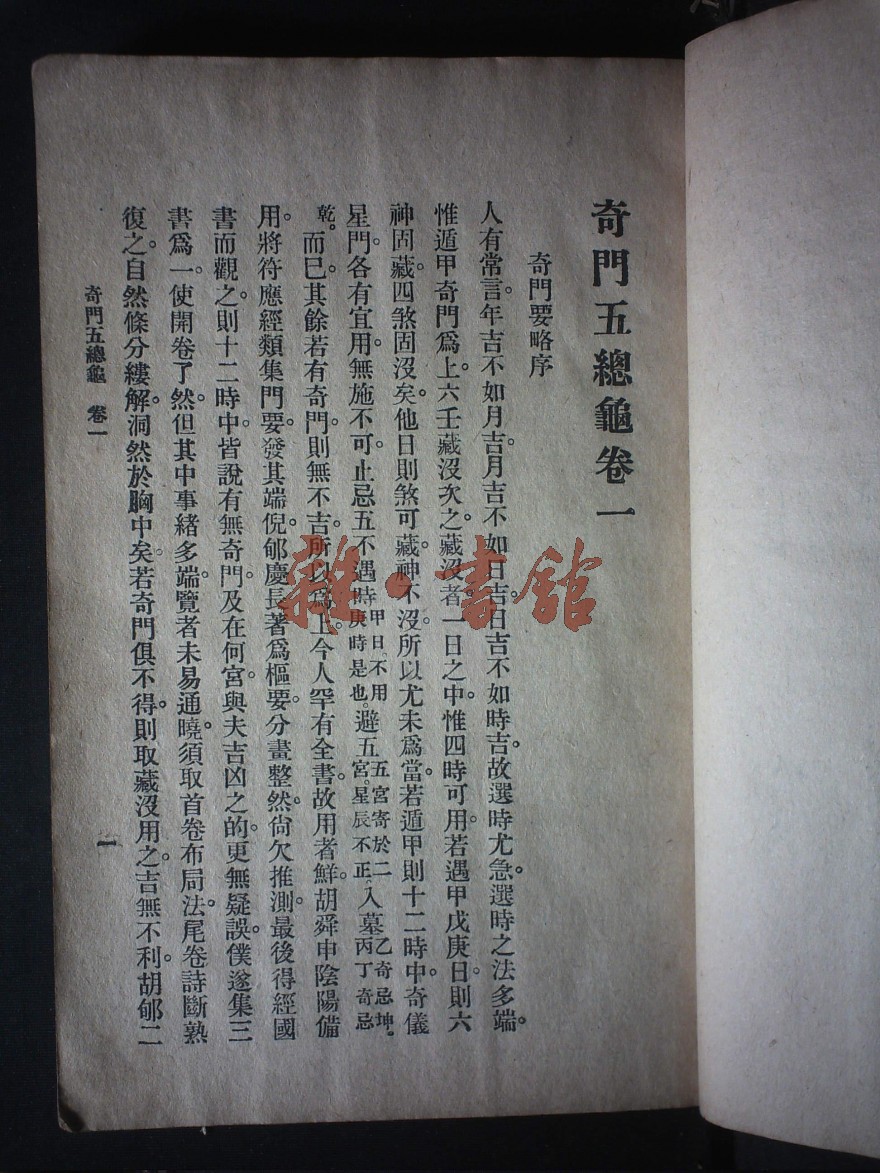 奇門五總龜卷一
奇門要略序
人有常言。年吉不如月吉。月吉不如日吉。日吉不如時吉。故選時尤急。選時之法多端。
惟遁甲奇門爲上。六壬藏沒次之。藏沒者。一日之中。惟四時可用。若遇甲戊庚日。則六
神固藏。四煞固沒矣。他日則煞可藏。神不沒。所以尤未爲當。若遁甲則十二時中。奇儀
星門。各有宜用。無施不可。止忌五不遇時甲日不用庚時是也。避五宮五宮寄於二。星辰不正。入墓乙奇忌坤。丙丁奇忌
乾。而已。其餘若有奇門。則無不吉。所以爲上。今人罕有全書。故用者鮮。胡舜申陰陽備
用。將符應經類集門要。發其端倪。郇慶長著爲樞要。分畫整然。尙欠推測。最後得經國
書而觀之。則十二時中。皆說有無奇門。及在何宮。與夫吉凶之的。更無疑誤。僕遂集三
書爲一。使開卷了然。但其中事緒多端。覽者未易通曉。須取首卷布局法。尾卷詩斷。熟
復之。自然條分縷解。洞然於胸中矣。若奇門俱不得。則取藏沒用之。吉無不利。胡郇二
奇門五總龜 卷一
一
雜·書館